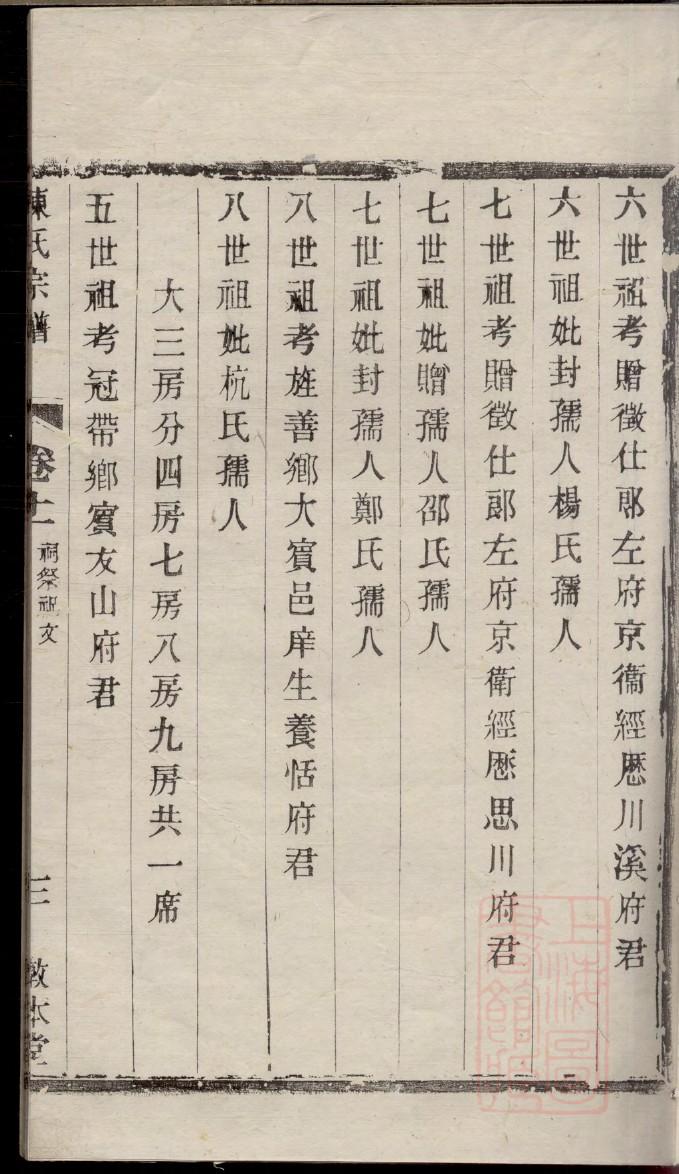 六世祖考贈徵仕郎左府京衞經歷川溪府君
六世祖妣封孺人楊氏孺人
七世祖考贈徵仕郎左府京衛經歷思川府君
七世祖妣贈孺人邵氏孺人
七世祖妣封孺人鄭氏孺人
八世祖考旌善鄉大賓邑庠生養恬府君
八世祖妣杭氏孺人
大三房分四房七房八房九房共一席
五世祖考冠帶鄉賓友山府君
陳氏宗譜
卷十一
祠祭祖文
三
敦本堂
上海圖書館藏